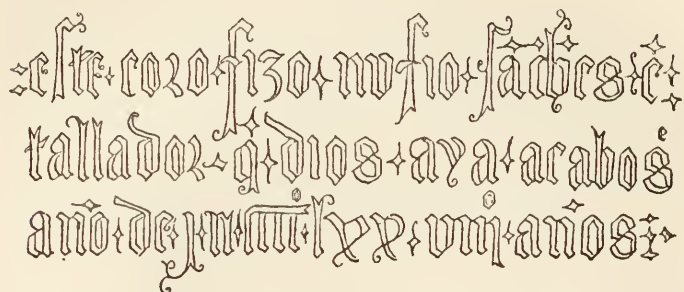 este · coro · fizo · nufio · sāches · ē
tallador · q̄ · dios · aya · acabosᵉ
año · de · j · m · iiiiº · lxx · viijº · años